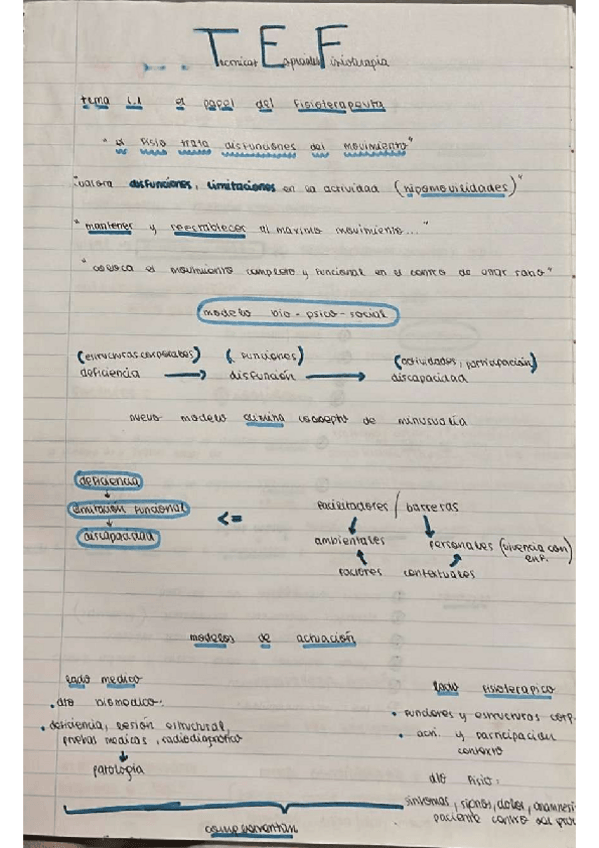 T E F
Tecnicas Especiales Fisioterapia
tema 1.1 el papel del Fisioterapeuta
"el Fisio trata disfunciones del movimiento"
"valora disfunciones, limitaciones en la actividad (hipomovilidades)"
"mantener y reestablecer al maximo movimiento..."
"coloca el movimiento completo y funcional en el centro de estar sano"
modelo bio-psico-social
(estructuras corporales) (funciones) (actividades, participación)
deficiencia → disfunción → discapacidad
nuevo modelo elimina concepto de minusvalía
deficiencia
↓
limitación funcional
↓
discapacidad
<=
Facilitadores / barreras
ambientales personales (vivencia con enf.)
factores contextuales
modelos de actuación
lado medico
• dto biomedico:
• deficiencia, lesión estructural,
pruebas medicas, radiodiagnóstico
↓
patología
lado fisioterapico
• funciones y estructuras corp.
• acti. y participación
contexto
dto fisio:
síntomas, signos, dolor, anamnesi
paciente centro
complementan